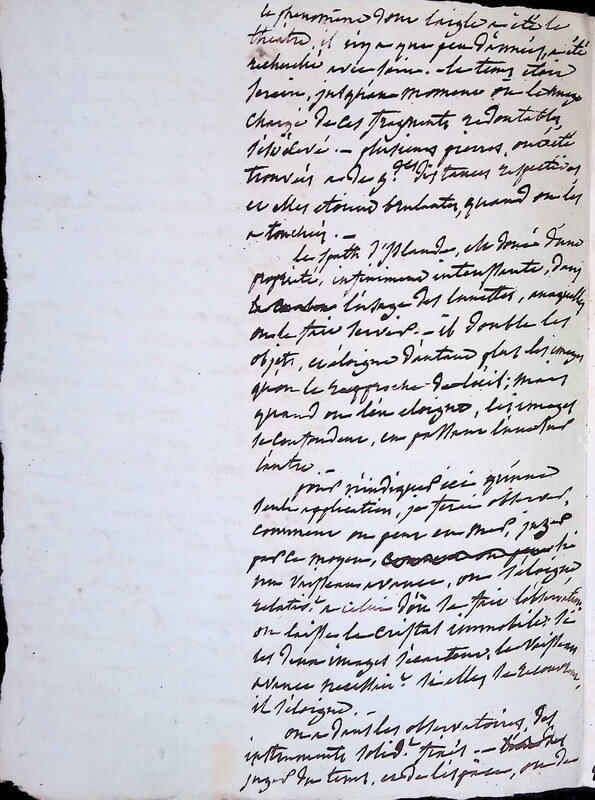 le phénomène dont l'aigle a été le
théâtre, il n'y a que peu d'années, a été
recherché avec soin. - le tems étoit
serein, jusqu'au moment où le nuage
chargé de ces fragments redoutables,
s'est élevé. - plusieurs pierres, ont été
trouvées a de gdes distances respectives
et elles étoient brulantes, quand on les
a touchées. -
le spath d'Islande, est doué d'une
propriété, infiniment intéressante, dans
l'usage des lunettes, auxquelles
on le fait servir. - il double les
objets, et éloigne d'autant plus les images
qu'on le rapproche de l'œil; mais
quand on l'en éloigne, les images
se confondent, en passant l'une sur
l'autre. -
pour n'indiquer ici qu'une
seule application, je ferai observer,
comment on peut en mer, juger
par ce moyen, si
un vaisseau avance, ou s'éloigne
relativt a celui d'où se fait l'observation
on laisse le cristal immobile. Si
les deux images s'écartent, le vaisseau
avance nécessairt si elles se recouvrent,
il s'éloigne. -
on a dans les observatoires, des
instruments solidt fixés. -
juger du tems, et de l'espace, ou de